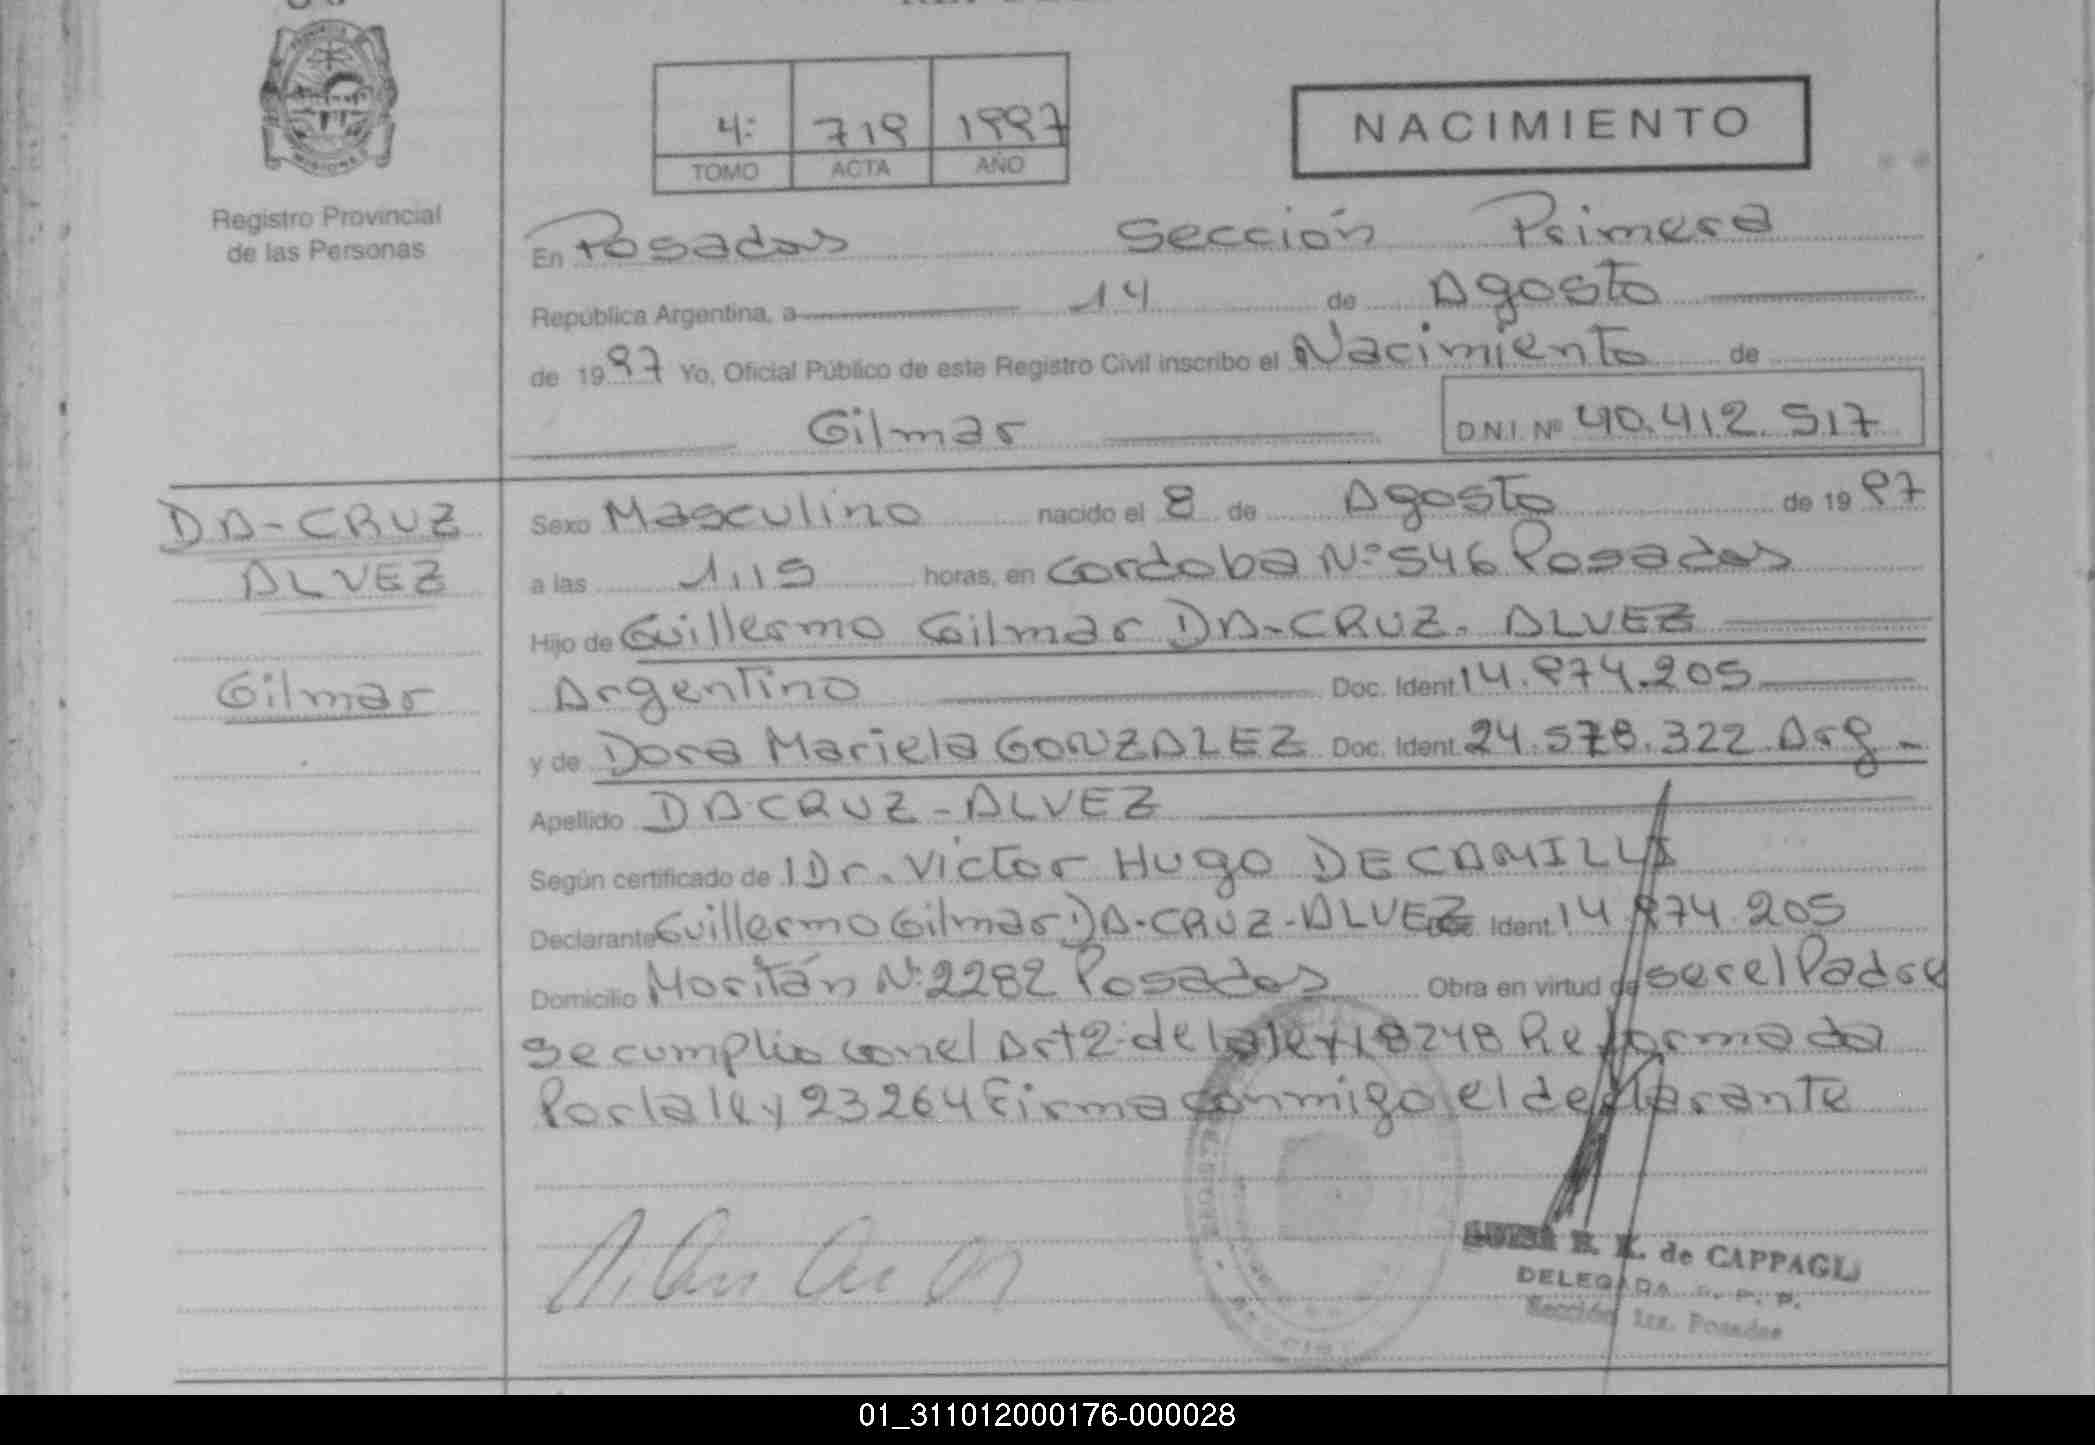 4: 719 1997
TOMO ACTA AÑO
NACIMIENTO
Registro Provincial
de las Personas
En Posadas Sección Primera
República Argentina, a 14 de Agosto
de 1997 Yo, Oficial Público de este Registro Civil inscribo el Nacimiento de
Gilmar D.N.I. Nº 40.412.517
DA-CRUZ
ALVEZ
Gilmar
Sexo Masculino nacido el 8 de Agosto de 1997
a las 1,15 horas, en Cordoba Nº 546 Posadas
Hijo de Guillermo Gilmar DA-CRUZ. ALVEZ
Argentino Doc. Ident. 14.974.205
y de Dora Mariela GONZALEZ Doc. Ident. 24.578.322 Arg
Apellido DA CRUZ-ALVEZ
Según certificado de Dr. Victor Hugo DECAMILLI
Declarante Guillermo Gilmar DA-CRUZ-ALVEZ Doc. Ident. 14.974.205
Domicilio Moritán Nº 2282 Posadas Obra en virtud de ser el Padre
Se cumplio con el Art 2 de la ley 18248 Reformada
Por la ley 23264 Firma conmigo el declarante
de CAPPAGLI
DELEGADA
Sección 1ra. Posadas
01_311012000176-000028